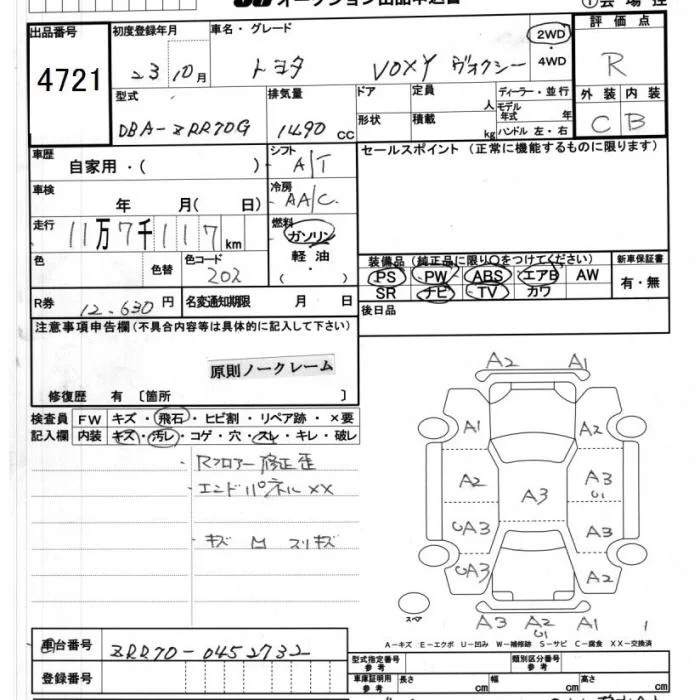 オークション出品申込書
① 会場控
出品番号 初度登録年月 車名・グレード 評価点
4721 23 10月 トヨタ VOXY ヴォクシー 2WD ・ 4WD R
型式 排気量 ドア 定員 人 ディーラー・並行 外装 内装
DBA-ZRR70G 1490 cc 形状 積載 kg モデル年式 年 ハンドル 左・右 C B
車歴 自家用・( ) シフト A/T セールスポイント (正常に機能するものに限ります)
車検 年 月( 日) 冷房 AA/C
走行 11万7千117km 燃料 ガソリン 軽油 ( ・ )
色 色替 色コード 202
装備品 (純正品に限り○をつけてください) 新車保証書
PS PW ABS エアB AW 有・無
SR ナビ TV カワ
R券 12,630円 名変通知期限 月 日 後日品
注意事項申告欄 (不具合内容等は具体的に記入して下さい)
原則ノークレーム
修復歴 有 〔箇所 〕
検査員 FW キズ・飛石・ヒビ割・リペア跡・×要
記入欄 内装 キズ・汚レ・コゲ・穴・スレ・キレ・破レ
・Rフロアー修正歪
・エンドパネルXX
・キズ 凹 スリキズ
A2 A1
A1 A2
A2 A3 A3 U1
UA3 A3
UA3 A2
スペア
A3 A2 U1 A1
A-キズ E-エクボ U-凹み W-補修跡 S-サビ C-腐食 XX-交換済
車台番号 ZRR70-0452732
型式指定番号 参考 類別区分番号 参考
登録番号 車庫証明用 参考 長さ cm 幅 cm 高さ cm